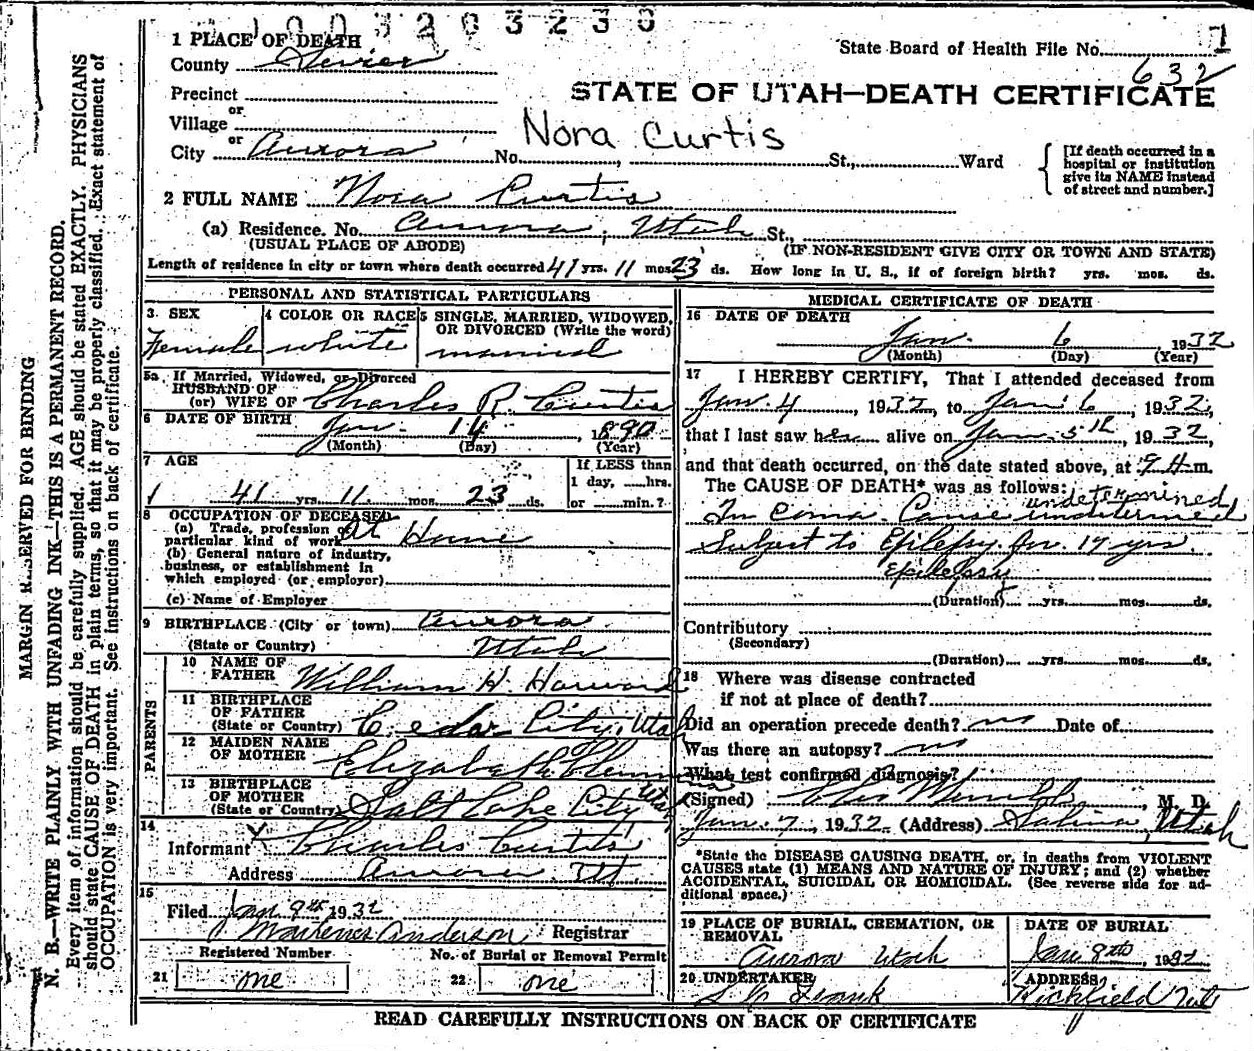 1003203230
1
1 PLACE OF DEATH
State Board of Health File No.
County Sevier
632
Precinct
STATE OF UTAH—DEATH CERTIFICATE
or
Village
Nora Curtis
or
City Aurora No. , St., Ward
[If death occurred in a
hospital or institution
give its NAME instead
of street and number.]
2 FULL NAME Nora Curtis
(a) Residence. No. Aurora, Utah St.,
(USUAL PLACE OF ABODE) (IF NON-RESIDENT GIVE CITY OR TOWN AND STATE)
Length of residence in city or town where death occurred 41 yrs. 11 mos 23 ds. How long in U. S., if of foreign birth? yrs. mos. ds.
PERSONAL AND STATISTICAL PARTICULARS
3. SEX
Female
4 COLOR OR RACE
white
5 SINGLE, MARRIED, WIDOWED,
OR DIVORCED (Write the word)
married
5a. If Married, Widowed, or Divorced
HUSBAND OF
(or) WIFE OF Charles R. Curtis
6 DATE OF BIRTH Jan. 14, 1890
(Month) (Day) (Year)
7 AGE
41 yrs. 11 mos. 23 ds.
If LESS than
1 day, hrs.
or min.?
8 OCCUPATION OF DECEASED
(a) Trade, profession or
particular kind of work At Home
(b) General nature of industry,
business, or establishment in
which employed (or employer)
(c) Name of Employer
9 BIRTHPLACE (City or town) Aurora
(State or Country) Utah
PARENTS
10 NAME OF
FATHER William H. Harward
11 BIRTHPLACE
OF FATHER
(State or Country) Cedar City, Utah
12 MAIDEN NAME
OF MOTHER Elizabeth
13 BIRTHPLACE
OF MOTHER
(State or Country) Salt Lake City Utah
14
Informant X Charles Curtis
Address Aurora Ut.
15
Filed Jan 9th 1932
Anderson Registrar
Registered Number No. of Burial or Removal Permit
21 one 22 one
MEDICAL CERTIFICATE OF DEATH
16 DATE OF DEATH
Jan. 6, 1932
(Month) (Day) (Year)
17 I HEREBY CERTIFY, That I attended deceased from
Jan. 4, 1932, to Jan 6, 1932,
that I last saw her alive on Jan 5th, 1932,
and that death occurred, on the date stated above, at 9 A m.
The CAUSE OF DEATH* was as follows:
undetermined
In Coma. Cause undetermined
Subject to Epilepsy for 17 yrs
Epilepsy
(Duration) yrs. mos. ds.
Contributory
(Secondary)
(Duration) yrs. mos. ds.
18 Where was disease contracted
if not at place of death?
Did an operation precede death? no Date of
Was there an autopsy? no
What test confirmed diagnosis?
(Signed) , M. D.
Jan. 7, 1932 (Address) Salina, Utah
*State the DISEASE CAUSING DEATH, or, in deaths from VIOLENT
CAUSES state (1) MEANS AND NATURE OF INJURY; and (2) whether
ACCIDENTAL, SUICIDAL OR HOMICIDAL. (See reverse side for ad-
ditional space.)
19 PLACE OF BURIAL, CREMATION, OR
REMOVAL
Aurora Utah
DATE OF BURIAL
Jan 8th, 1932
20 UNDERTAKER
ADDRESS
Richfield Utah
READ CAREFULLY INSTRUCTIONS ON BACK OF CERTIFICATE
MARGIN RESERVED FOR BINDING
N. B.—WRITE PLAINLY WITH UNFADING INK—THIS IS A PERMANENT RECORD.
Every item of information should be carefully supplied. AGE should be stated EXACTLY. PHYSICIANS
should state CAUSE OF DEATH in plain terms, so that it may be properly classified. Exact statement of
OCCUPATION is very important. See instructions on back of certificate.